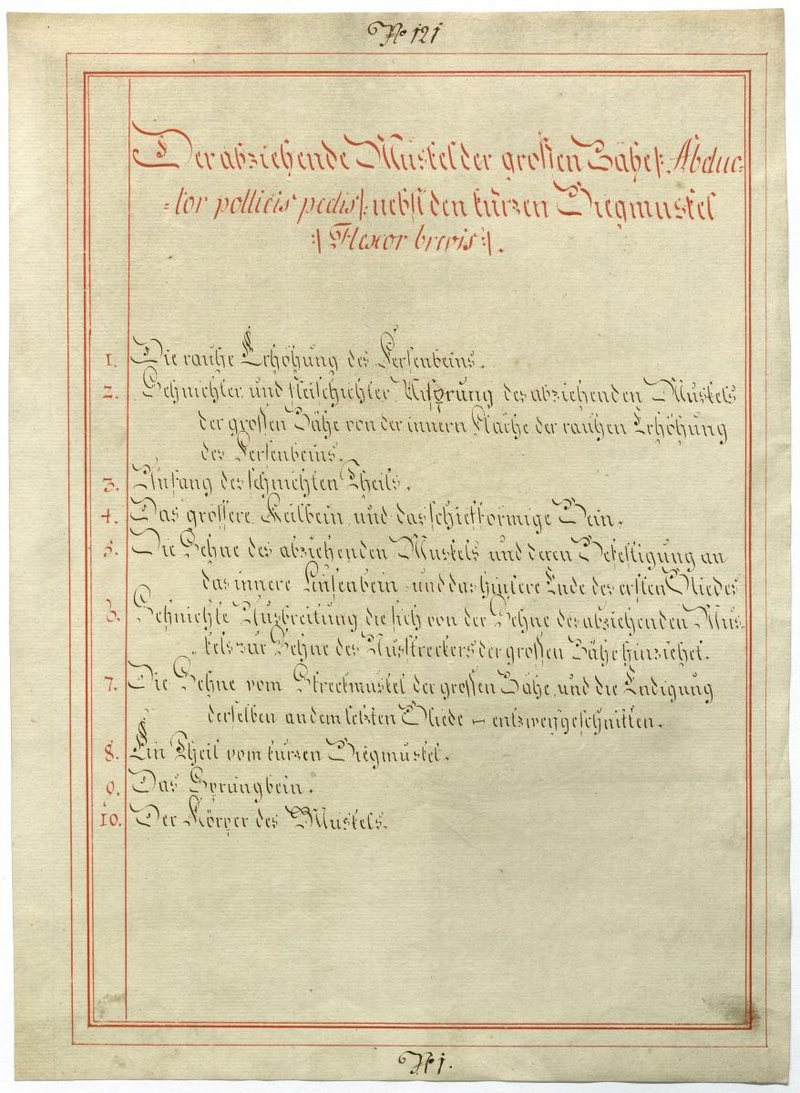 No 121
Der abziehende Muskel der großen Zähe |: Abduc=
=tor pollicis pedis :| nebst den kurzen Biegmuskel
:| Flexor brevis :|.
1. Die rauhe Erhöhung des Fersenbeins.
2. Sehnichter und fleischichter Ursprung des abziehenden Muskels
der großen Zähe von der innern Fläche der rauhen Erhöhung
des Fersenbeins.
3. Anfang des sehnichten Theils.
4. Das grössere Keilbein und das schiefförmige Bein.
5. Die Sehne des abziehenden Muskels und deren Befestigung an
das innere Linsenbein und das hintere Ende des ersten Gliedes
6. Sehnichte Ausbreitung die sich von der Sehne des abziehenden Mus=
kels zur Sehne des Ausstreckers der großen Zähe hinziehet.
7. Die Sehne vom Streckmuskel der großen Zähe und die Endigung
derselben an dem letzten Gliede – entzweÿgeschnitten.
8. Ein Theil vom kurzen Biegmuskel.
9. Das Sprungbein.
10. Der Körper des Muskels.
No 1.